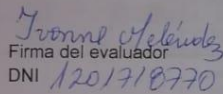 Ivonne Meléndez
Firma del evaluador
DNI 1201718770